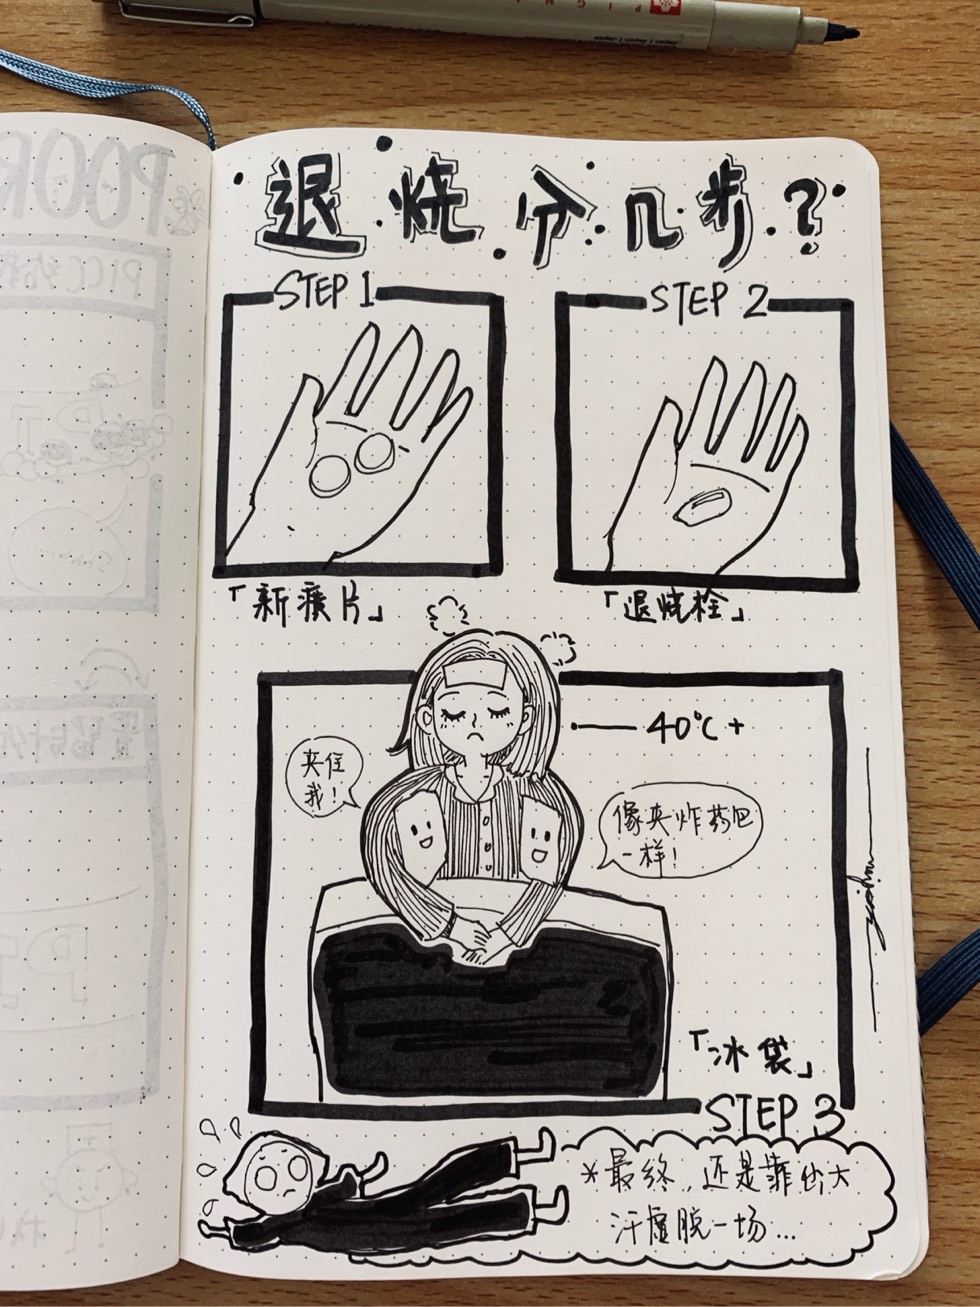 退烧分几步?
STEP 1
STEP 2
「新癀片」
「退烧栓」
40℃+
夹住
我!
像夹炸药包
一样!
「冰袋」
STEP 3
*最终,还是靠出大
汗虚脱一场...
POOR
PICC